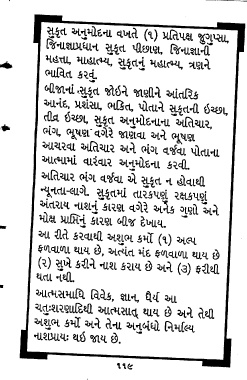 સુકૃત અનુમોદના વખતે (૧) પ્રતિપક્ષ જુગુપ્સા,
જિનાજ્ઞાપ્રધાન સુકૃત પીછાણ, જિનાજ્ઞાની
મહત્તા, માહાત્મ્ય, સુકૃતનું મહાત્મ્ય, ત્રણને
ભાવિત કરવું.
બીજાનાં સુકૃત જોઇને જાણીને આંતરિક
આનંદ, પ્રશંસા, ભકિત, પોતાને સુકૃતની ઇચ્છા,
તીવ્ર ઇચ્છા, સુકૃત અનુમોદનાના અતિચાર,
ભંગ, ભૂષણ વગેરે જાણવા અને ભૂષણ
આચરવા અતિચાર અને ભંગ વર્જવા પોતાના
આત્મામાં વારંવાર અનુમોદના કરવી.
અતિચાર ભંગ વર્જવા એ સુકૃત ન હોવાથી
ન્યૂનતા લાગે. સુકૃતમાં તારકપણું રક્ષકપણું
અંતરાય નાશનું કારણ વગેરે અનેક ગુણો અને
મોક્ષ પ્રાપ્તિનું કારણ બીજ દેખાય.
આ રીતે કરવાથી અશુભ કર્મો (૧) અલ્પ
ફળવાળા થાય છે, અત્યંત મંદ ફળવાળા થાય છે
(૨) સુખે કરીને નાશ કરાય છે અને (૩) ફરીથી
થતા નથી.
આત્મસમાધિ વિવેક, જ્ઞાન, ધૈર્ય આ
ચતુઃશરણાદિથી આત્મસાત્ થાય છે અને તેથી
અશુભ કર્મો અને તેના અનુબંધો નિર્માલ્ય
નાશપ્રાયઃ થઇ જાય છે.
૧૧૯